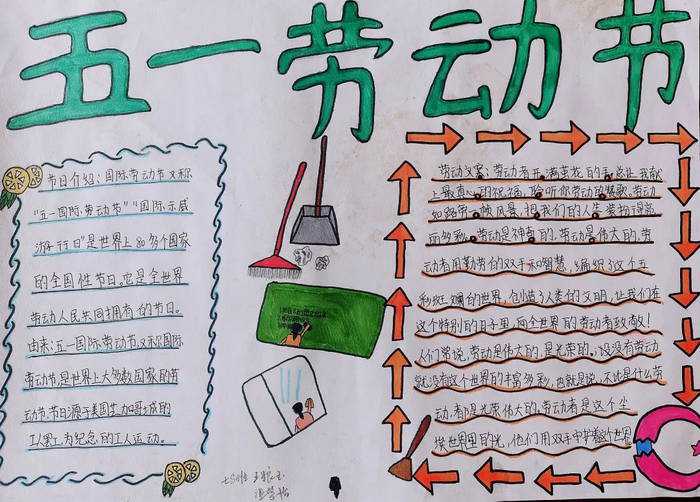 五一劳动节
节日介绍：国际劳动节又称
“五一国际劳动节”“国际示威
游行日”是世界上80多个国家
的全国性节日。它是全世界
劳动人民共同拥有的节日。
由来：五一国际劳动节又称国际
劳动节，是世界上大多数国家的劳
动节。节日源于美国芝加哥城的
工人罢工，为纪念的工人运动。
劳动义寨，劳动者开满茧花的手，总让我献
上最真心的祝福，聆听你劳动的赞歌。劳动
如路带一帧风景，把我们的人生装扮得
而多彩。劳动是神奇的，劳动是伟大的。劳
动者用勤劳的双手和智慧，编织了这个五
彩斑斓的世界，创造了人类的文明。让我们在
这个特别的日子里，向全世界的劳动者致敬！
人们常说，劳动是伟大的，是光荣的。没有劳动
就没有这个世界的丰富多彩。也就是说，不论是什么劳
动，都是光荣伟大的，劳动者是这个尘
埃世界里的光，他们用双手守护着这个世界
七5班